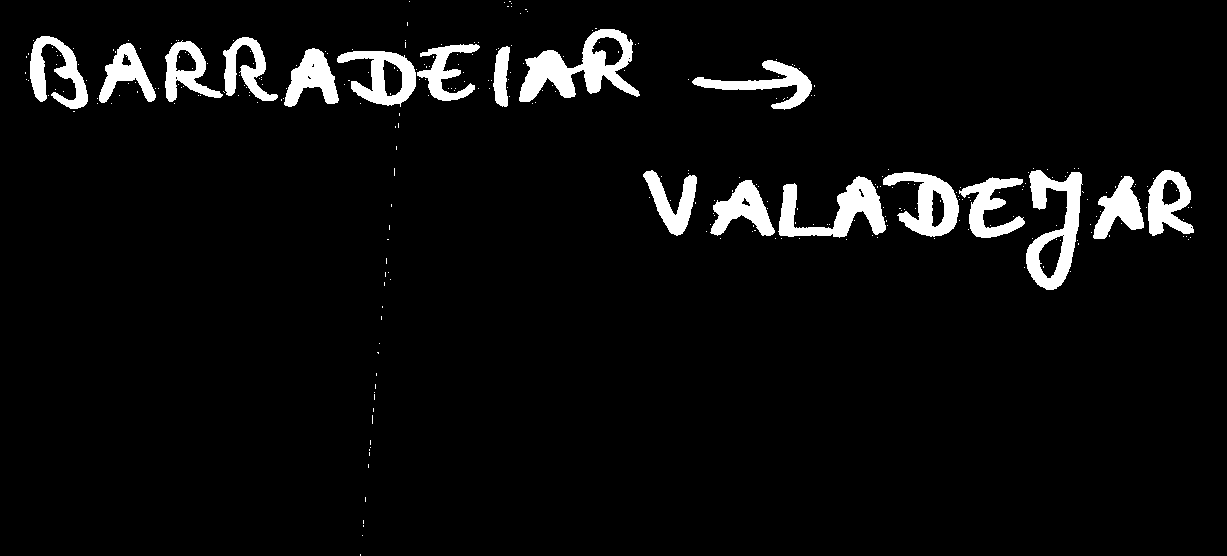 BARRADEIAR →
VALADEJAR